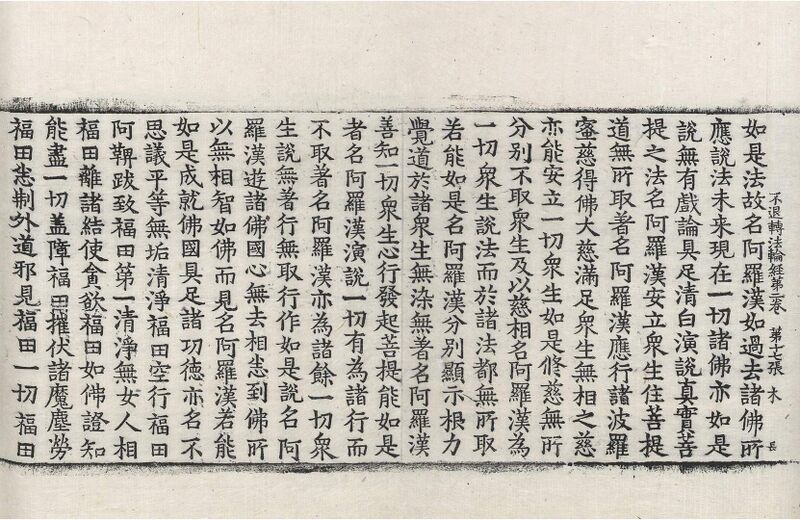 不退轉法輪經第二卷 第十七張 木 長
如是法故名阿羅漢如過去諸佛所
應說法未來現在一切諸佛亦如是
說無有戲論具足清白演說真實菩
提之法名阿羅漢安立衆生住菩提
道無所取著名阿羅漢應行諸波羅
蜜慈得佛大慈滿足衆生無相之慈
亦能安立一切衆生如是修慈無所
分別不取衆生及以慈相名阿羅漢為
一切衆生說法而於諸法都無所取
若能如是名阿羅漢分別顯示根力
覺道於諸衆生無染無著名阿羅漢
善知一切衆生心行發起菩提能如是
者名阿羅漢演說一切有為諸行而
不取著名阿羅漢亦為諸餘一切衆
生說無著行無取行作如是說名阿
羅漢遊諸佛國心無去相悉到佛所
以無相智如佛而見名阿羅漢若能
如是成就佛國具足諸功德亦名不
思議平等無垢清淨福田空行福田
阿鞞跋致福田第一清淨無女人相
福田離諸結使貪欲福田如佛證知
能盡一切盖障福田摧伏諸魔塵勞
福田悉制外道邪見福田一切福田